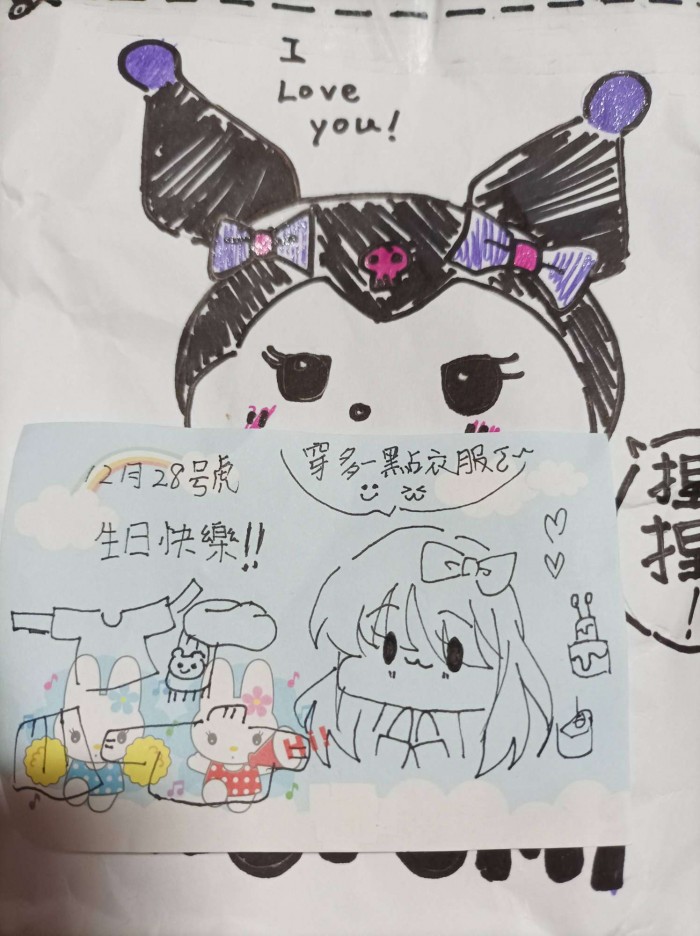 I
Love
you!
12月28号虎
生日快樂!!
穿多一點衣服ㄛ~
捏
捏
!
Hi!